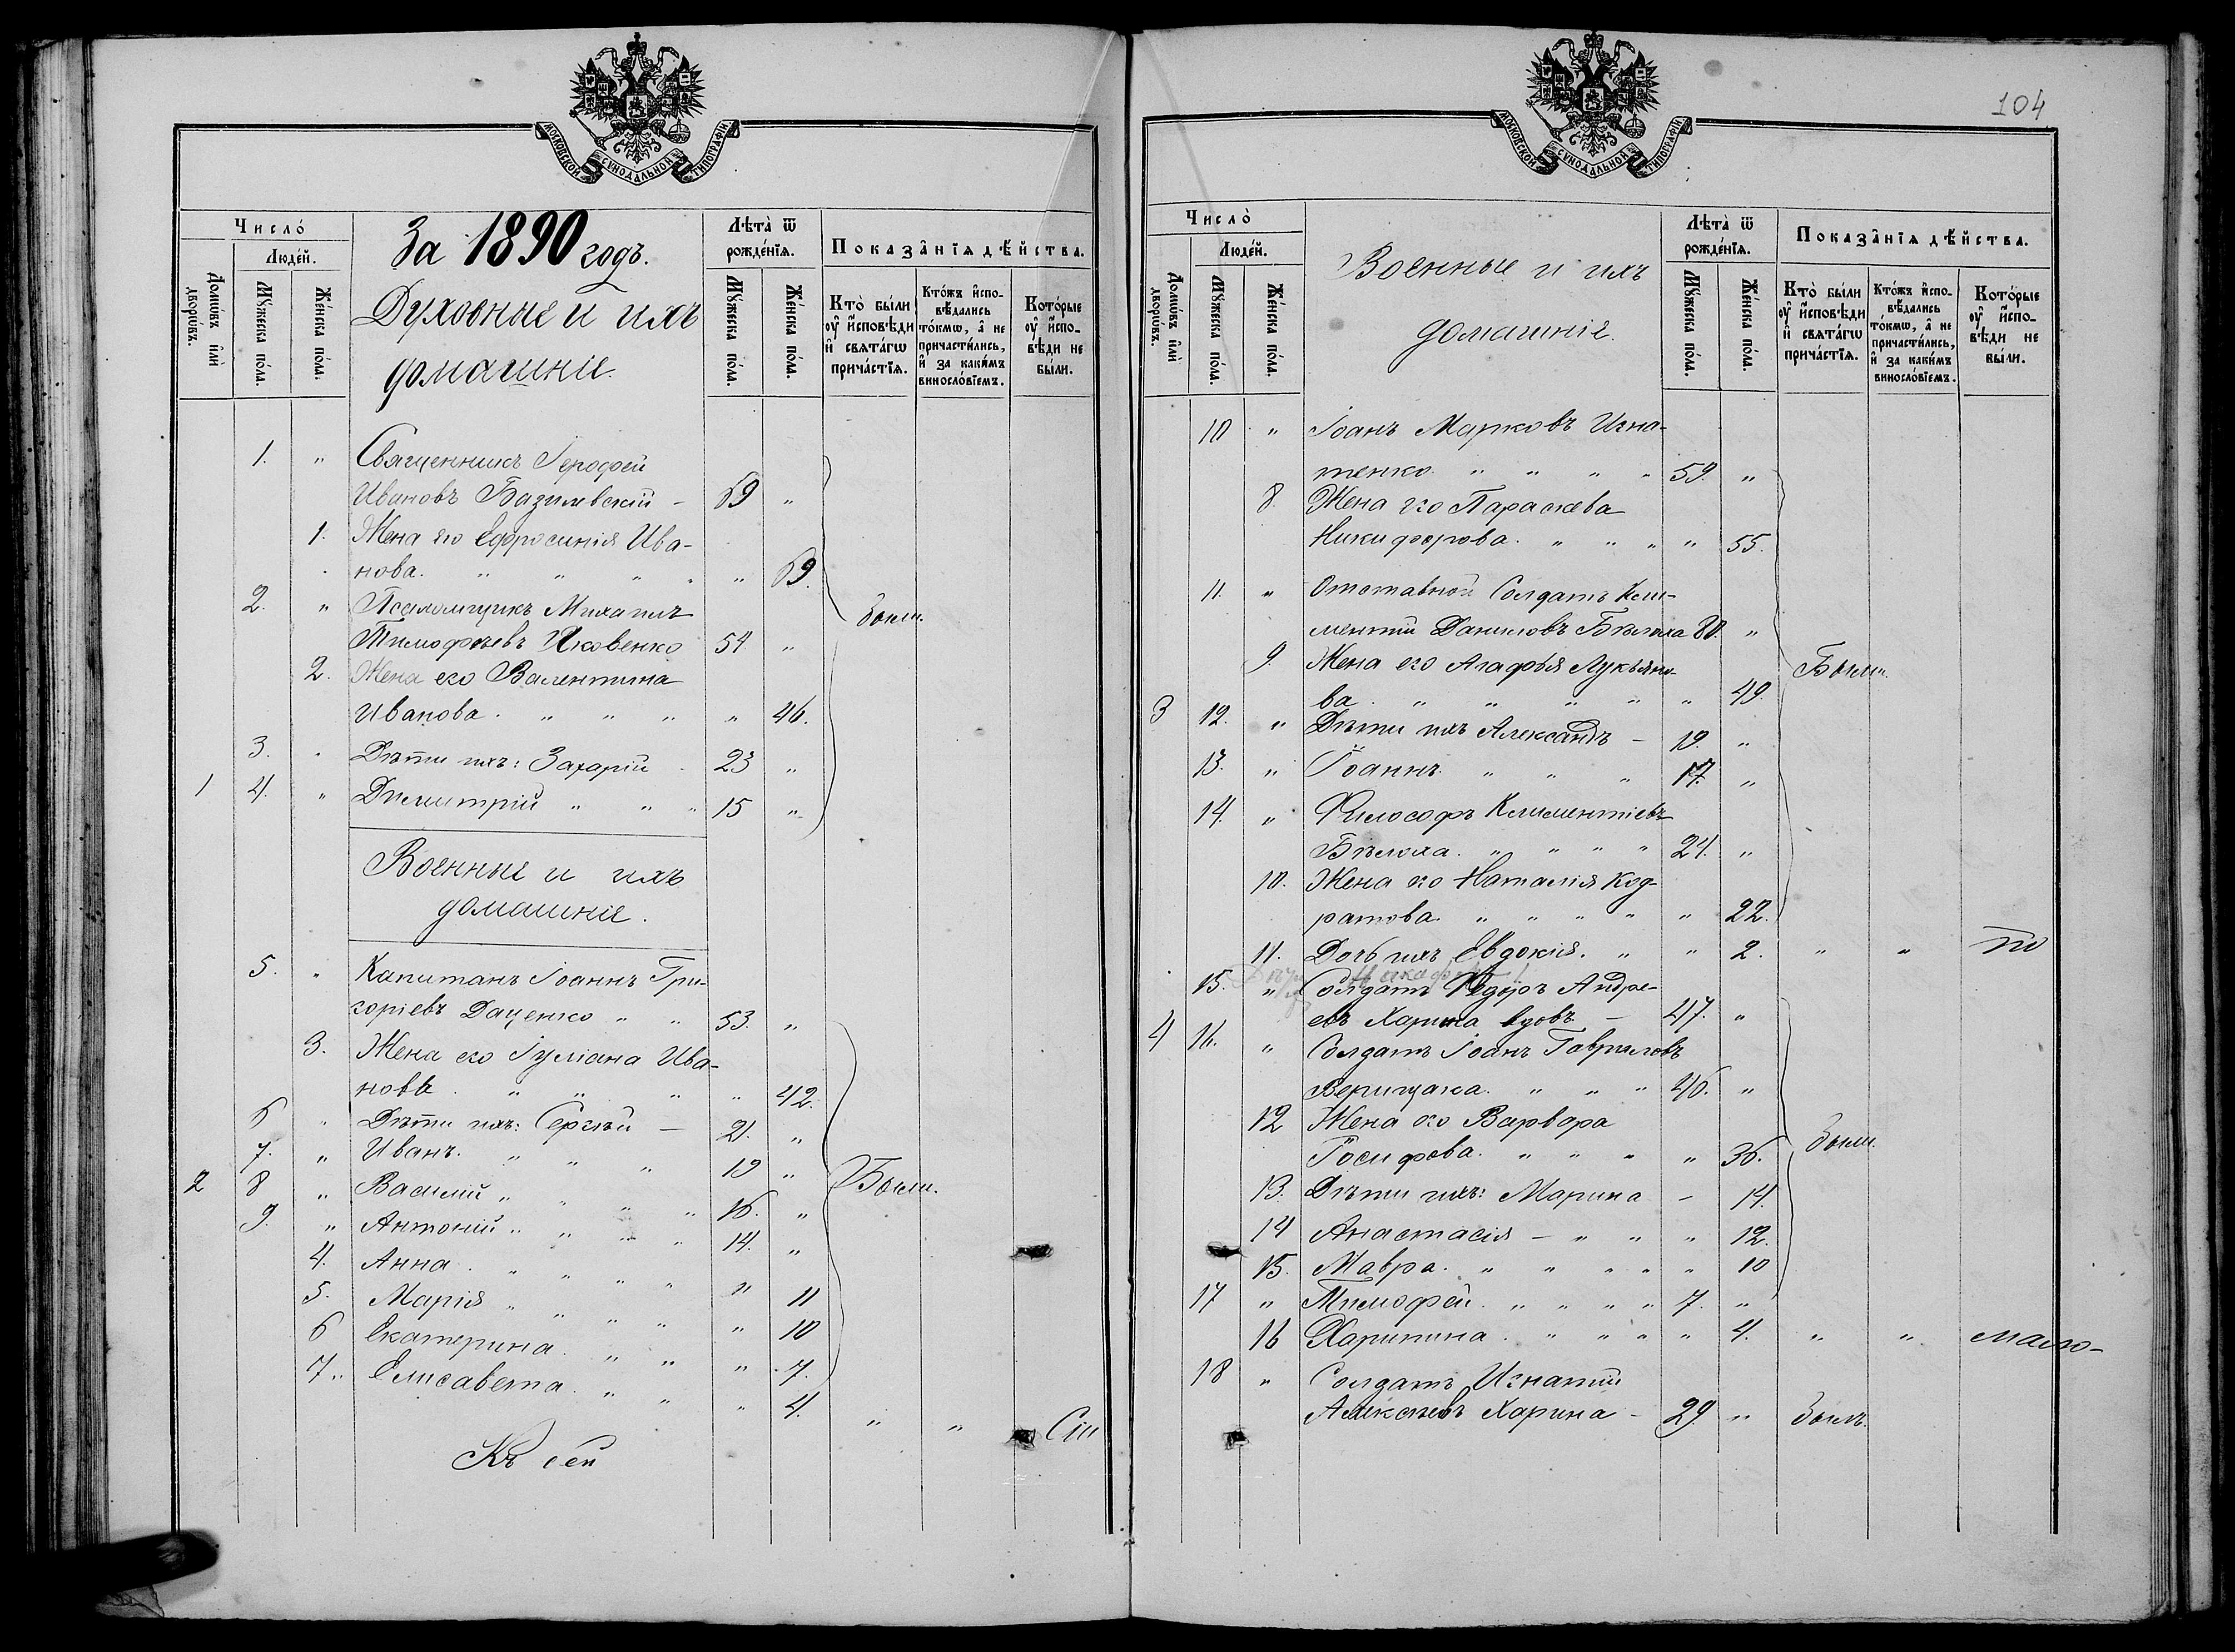 МОСКОВСКОЙ СѴНОДАЛЬНОЙ ТИПОГРАФІИ
Число̀
Людéй.
Домѡ́въ и҆лѝ дворѡ́въ.
Мꙋ́жеска по́ла.
Же́нска по́ла.
За 1890 годъ.
Духовные и ихъ
домашніе.
Лѣта̀ ѿ рожде́нїѧ.
Мꙋ́жеска по́ла.
Же́нска по́ла.
Показа̂нїѧ дѣ́йства.
Кто̀ бы́ли ᲂу҆ и҆сповѣ́ди и҆ свѧта́гѡ прича́стїѧ.
Кто́жъ и҆сповѣ́дались то́кмѡ, а҆ не причасти́лись, и҆ за каки́мъ винослóвїемъ.
Кото́рые ᲂу҆ и҆сповѣ́ди не бы́ли.
1. " Священникъ Іерофей
Ивановъ Базилевскій - 69 "
1. Жена его Ефросинія Ива-
нова. " " " " " 69.
2. " Псаломщикъ Михаилъ были.
Тимофѣевъ Яковенко 54. "
2. Жена его Валентина
Иванова. " " " " 46.
3. " Дѣти ихъ: Захарій - 23 "
1 4. " Димитрій " " " 15 "
Военные и ихъ
домашніе.
5. " Капитанъ Іоаннъ Гри-
горіевъ Даценко " " 53. "
3. Жена его Іуліана Ива-
нова. " " " " 42.
6 " Дѣти ихъ: Сергѣй - 21. "
7. " Иванъ. " " " 19 "
2 8 " Василій " " " " 16. " Были.
9. " Антоній " " " " 14. "
4. Анна. " " " " " 11
5. Марія " " " " " 10
6 Екатерина. " " " 7.
7. " Елисавета. " " " 4. " "
Къ сей
104
МОСКОВСКОЙ СѴНОДАЛЬНОЙ ТИПОГРАФІИ
Число̀
Людéй.
Домѡ́въ и҆лѝ дворѡ́въ.
Мꙋ́жеска по́ла.
Же́нска по́ла.
Военные и ихъ
домашніе.
Лѣта̀ ѿ рожде́нїѧ.
Мꙋ́жеска по́ла.
Же́нска по́ла.
Показа̂нїѧ дѣ́йства.
Кто̀ бы́ли ᲂу҆ и҆сповѣ́ди и҆ свѧта́гѡ прича́стїѧ.
Кто́жъ и҆сповѣ́дались то́кмѡ, а҆ не причасти́лись, и҆ за каки́мъ винослóвїемъ.
Кото́рые ᲂу҆ и҆сповѣ́ди не бы́ли.
10 " Іоанъ Марковъ Игна-
тенко. " " " " 59. "
8. Жена его Параскева
Никифорова. " " " " 55.
11. " Отставной Солдатъ Кли-
ментій Даниловъ Бѣлоха 80. "
9. Жена его Агафья Лукьяно- Были.
ва. " " " " " 49.
3 12. " Дѣти ихъ Александъ - 19. "
13. " Іоаннъ. " " " 17. "
14. " Философъ Климентіевъ
Бѣлоха. " " " " 24. "
10. Жена его Наталія Код-
ратова. " " " " " 22.
11. Дочь ихъ Евдокія. " " 2. " " по
15. " Солдатъ Федоръ Андре-
евъ Харина вдовъ - 47. "
4 16. " Солдатъ Іоанъ Гавриловъ
Верещака. " " " 46. "
12 Жена его Варвара
Іосифова. " " " " 36. были.
13. Дѣти ихъ: Марина - 14.
14 Анастасія - " " " 12.
15. Мавра. " " " " " 10
17 " Тимофей. " " " " 7. "
16 Харитина. " " " " 4. " " мало-
18 " Солдатъ Игнатій
Алексѣевъ Харина - 29 " былъ.